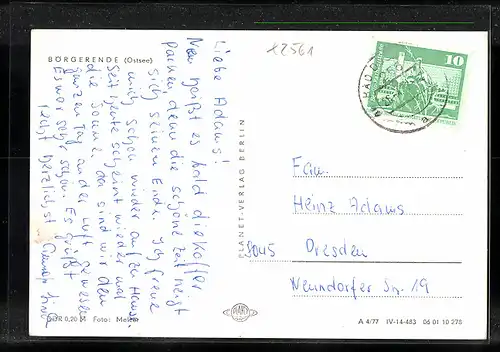 BÖRGERENDE (Ostsee)
x2561
Liebe Adams!
Nun heißt es bald die Koffer
packen denn die schöne Zeit neigt
sich seinem Ende. Ich freue
mich schon wieder auf zu Hause.
Seit heute scheint wieder mal
die Sonne, da sind wir den
ganzen Tag an der Luft gewesen
Es war sehr schön. Es grüßt
recht herzlichst
10
BAD DO
PLANET-VERLAG BERLIN
Fam.
Heinz Adams
8045 Dresden
Wenndorfer Str. 19
0,20 M Foto:
PLANET
A 4/77 IV-14-483 06 01 10 278